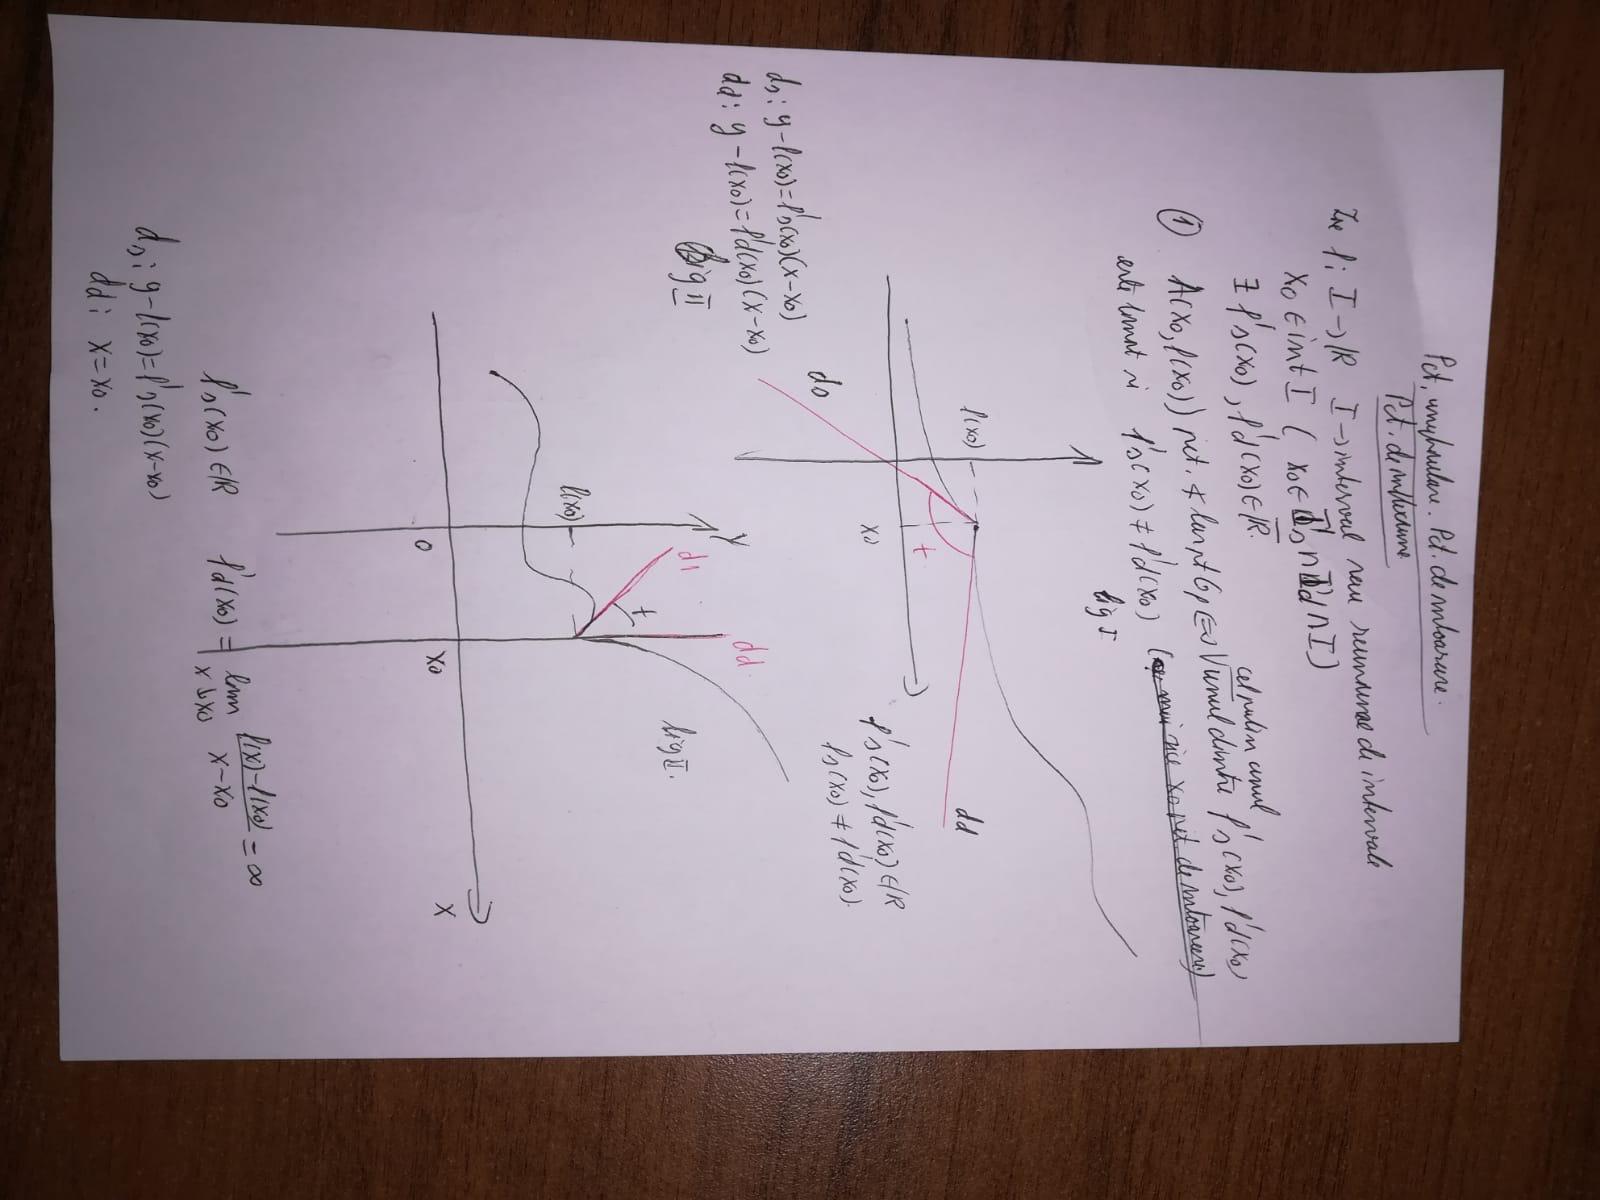 Pct. unghiulare. Pct. de întoarcere.
Pct. de inflexiune
Fie f: I→ℝ I→interval sau reuniune de intervale
x0 ∈ int I ( x0 ∈ I's ∩ I'd ∩ I)
∃ f's(x0), f'd(x0) ∈ ℝ̅.
cel puțin unul
① A(x0, f(x0)) pct. ∢ lar pt Gf ⇔ unul dintre f's(x0), f'd(x0)
este finit și f's(x0) ≠ f'd(x0) (mai zice x0 pct. de întoarcere)
fig I
f(x0)
dd
t
x0
f's(x0), f'd(x0) ∈ ℝ
fs(x0) ≠ f'd(x0).
ds
ds: y-f(x0)=f's(x0)(x-x0)
dd: y-f(x0)=f'd(x0)(x-x0)
fig II
y
dd
ds
t
fig II.
f(x0)
O
x0
x
f's(x0) ∈ ℝ f'd(x0) = lim x↘x0 f(x)-f(x0)/x-x0 = ∞
ds: y-f(x0)=f's(x0)(x-x0)
dd: x=x0.